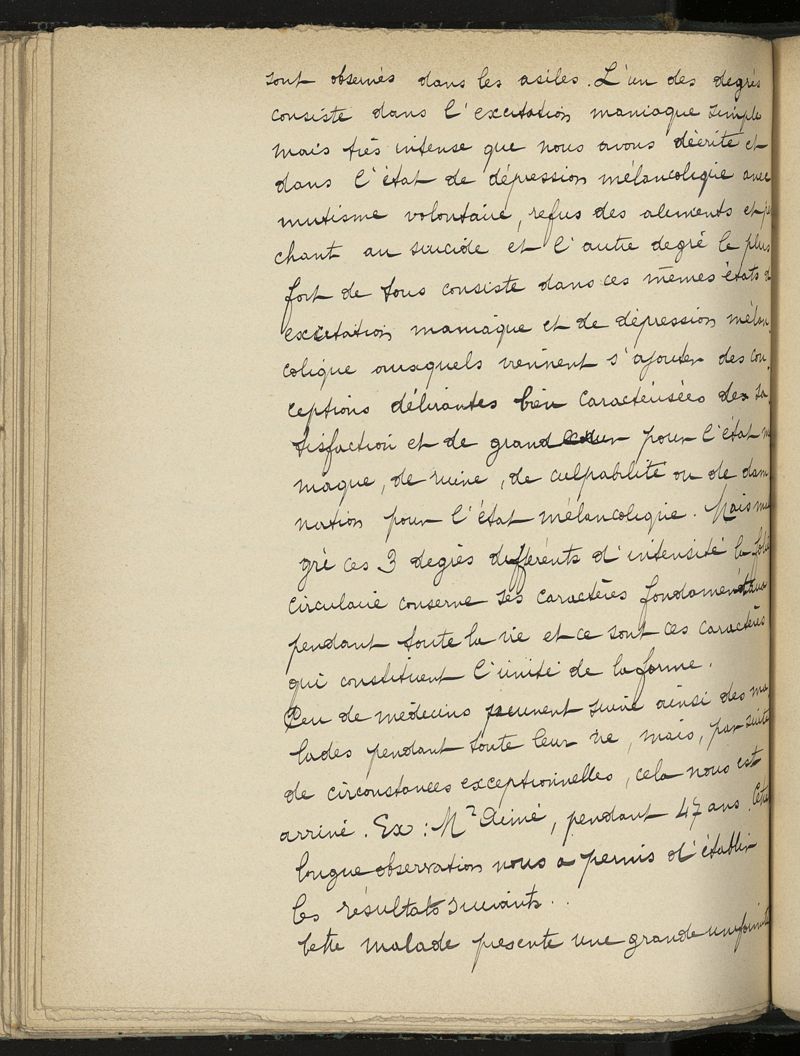 sont observés dans les asiles. L'un des degrés
consiste dans l'excitation maniaque simple
mais très intense que nous avons décrite et
dans l'état de dépression mélancolique avec
mutisme volontaire, refus des aliments et pe
chant au suicide et l'autre degré le plus
fort de tous consiste dans ces mêmes états d
excitation maniaque et de dépression mélan-
colique auxquels viennent s'ajouter des con-
ceptions délirantes bien caractérisées de sa-
tisfaction et de grandeur pour l'état m
maque, de ruine, de culpabilité ou de dam
nation pour l'état mélancolique. Mais mal
gré ces 3 degrés différents d'intensité la folie
circulaire conserve ses caractères fondamentaux
pendant toute la vie et ce sont ces caractères
qui constituent l'unité de la forme.
Peu de médecins peuvent suivre ainsi des ma-
lades pendant toute leur vie, mais, par suite
de circonstances exceptionnelles, cela nous est
arrivé. Ex: Mr Aimé, pendant 47 ans. Cette
longue observation nous a permis d'établir
les résultats suivants..
Cette malade présente une grande uniformité